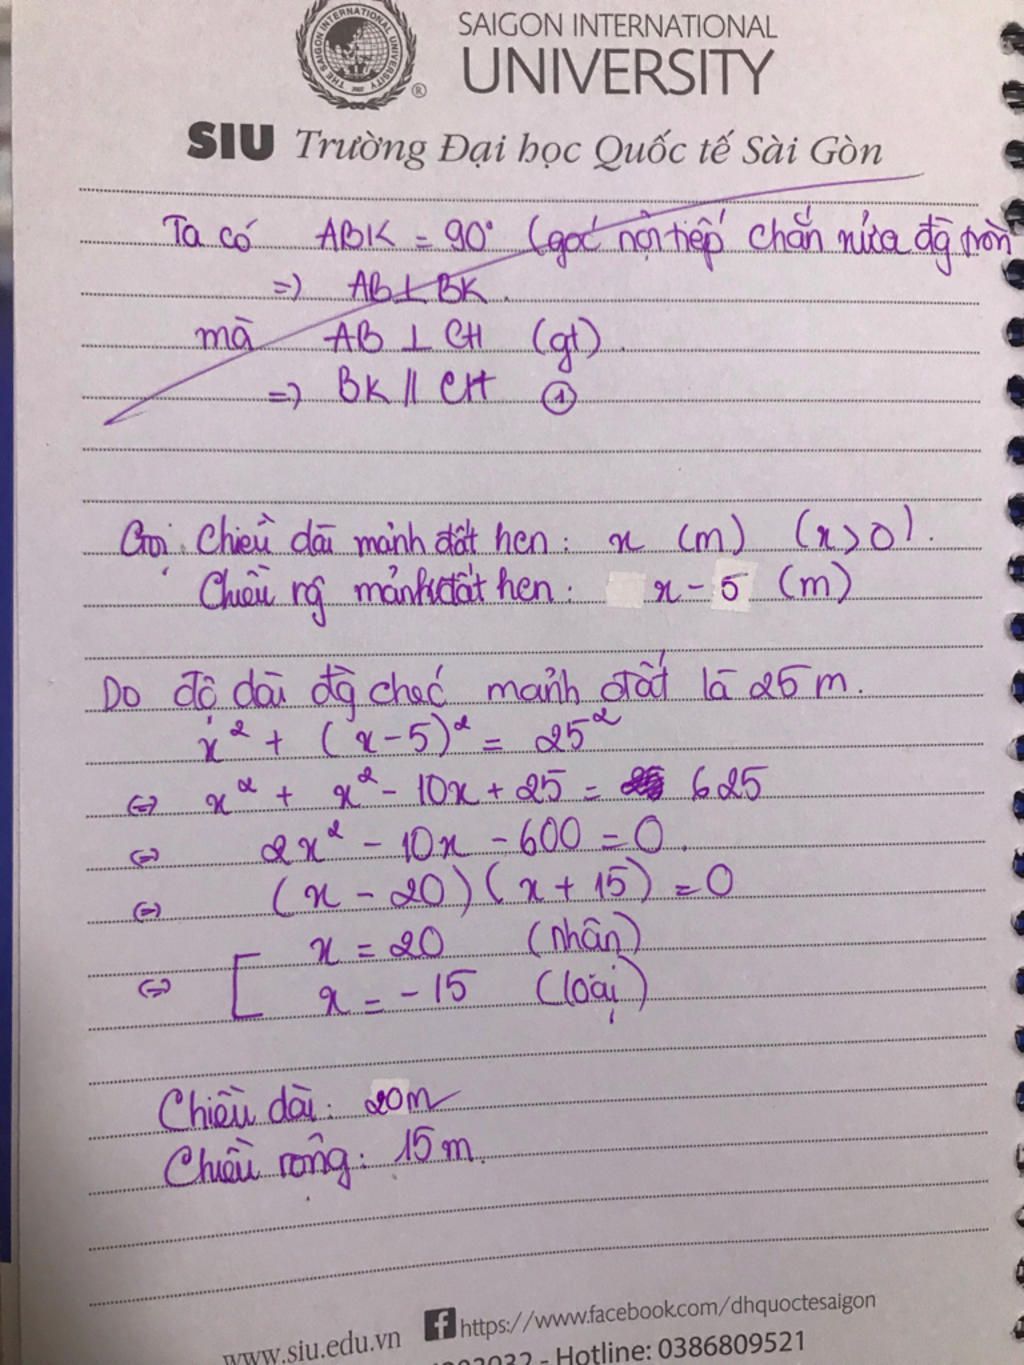 THE SAIGON INTERNATIONAL UNIVERSITY
®
SAIGON INTERNATIONAL
UNIVERSITY
SIU Trường Đại học Quốc tế Sài Gòn
Ta có ABK = 90° (góc nội tiếp chắn nửa đg tròn
=) AB ⊥ BK.
mà AB ⊥ CH (gt).
=) BK // CH ①
Gọi: Chiều dài mảnh đất hcn: x (m) (x > 0).
Chiều rg mảnh đất hcn: x - 5 (m)
Do độ dài đg chéo mảnh đất là 25 m.
x² + (x - 5)² = 25²
(=) x² + x² - 10x + 25 = 625
(=) 2x² - 10x - 600 = 0.
(=) (x - 20)(x + 15) = 0
(=) [ x = 20 (nhân)
x = -15 (loại)
Chiều dài: 20m
Chiều rộng: 15m.
www.siu.edu.vn
https://www.facebook.com/dhquoctesaigon
- Hotline: 0386809521